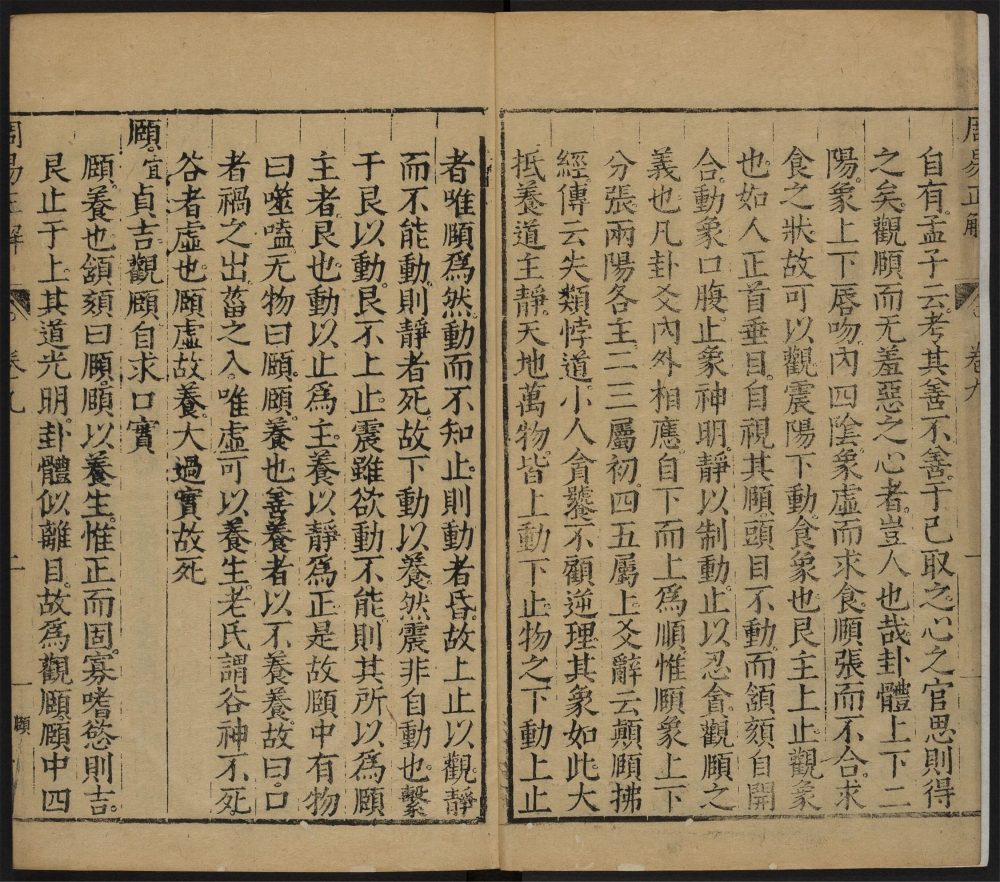 周易正解
卷九
自有孟子云考其善不善于己取之心之官思則得
之矣觀頤而无羞惡之心者豈人也哉卦體上下二
陽象上下唇吻內四陰象虛而求食頤張而不合求
食之狀故可以觀震陽下動食象也艮主上止觀象
也如人正首垂目自視其頤頭目不動而頷頦自開
合動象口腹止象神明靜以制動止以忍會觀頤之
義也凡卦爻內外相應自下而上為順惟頤象上下
分張兩陽各主二三屬初四五屬上爻辭云顚頤拂
經傳云失類悖道小人貪饕不顧逆理其象如此大
抵養道主靜天地萬物皆上動下止物之下動上止
者唯頤爲然動而不知止則動者昏故上止以觀靜
而不能動則靜者死故下動以養然震非自動也繫
于艮以動艮不上止震雖欲動不能則其所以爲頤
主者艮也動以止爲主養以靜爲正是故頤中有物
曰噬嗑无物曰頤頤養也善養者以不養養故曰口
者禍之出菑之入唯虛可以養生老氏謂谷神不死
谷者虛也頤虛故養大過實故死
頤宜貞吉觀頤自求口實
頤養也頷頦曰頤頤以養生惟正而固寡嗜慾則吉
艮止于上其道光明卦體似離目故爲觀頤頤中四
周易正解
卷九
二
頤